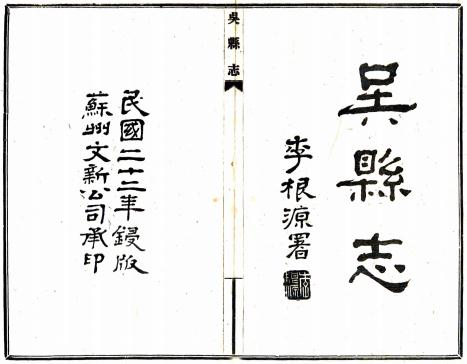 吳縣志
李根源署
吳縣志
民國二十二年鋟版
蘇州文新公司承印